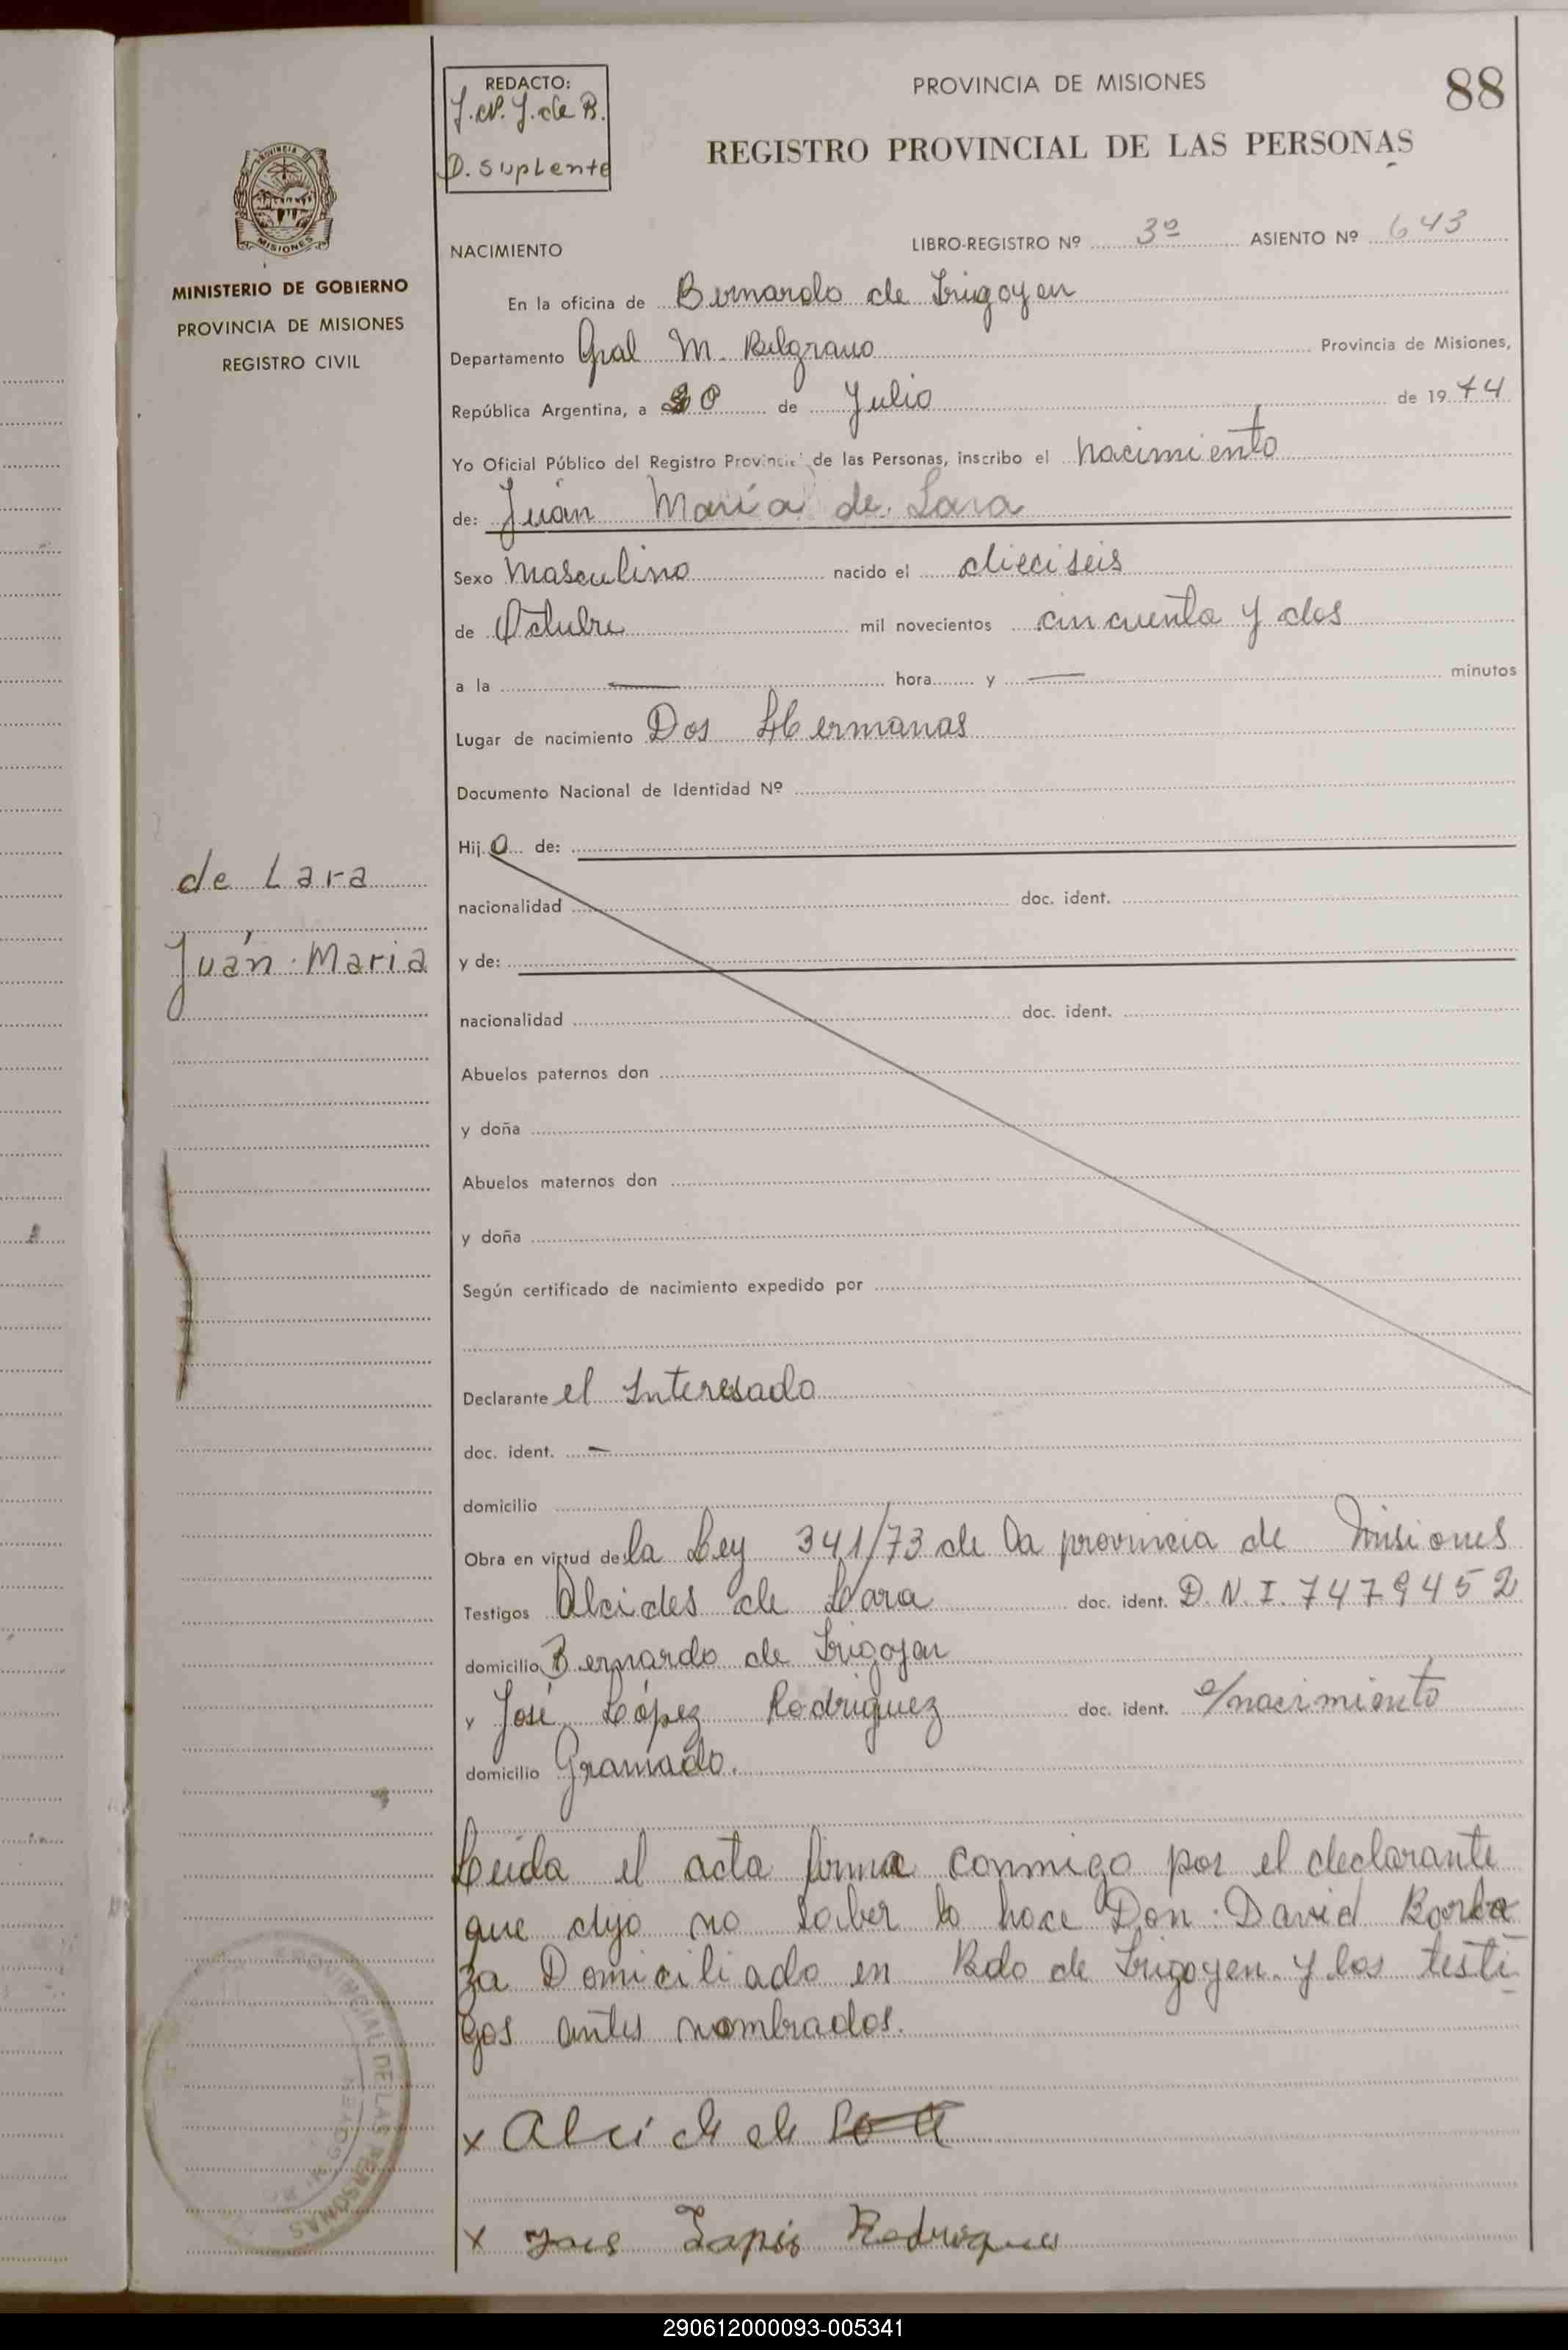 REDACTO:
J. N. J. de B.
D. Suplente
PROVINCIA DE MISIONES
88
REGISTRO PROVINCIAL DE LAS PERSONAS
PROVINCIA DE
MISIONES
MINISTERIO DE GOBIERNO
PROVINCIA DE MISIONES
REGISTRO CIVIL
NACIMIENTO
LIBRO-REGISTRO Nº 3º ASIENTO Nº 643
En la oficina de Bernardo de Irigoyen
Departamento Gral M. Belgrano Provincia de Misiones,
República Argentina, a 30 de Julio de 1974
Yo Oficial Público del Registro Provincial de las Personas, inscribo el nacimiento
de: Juán María de Lara
Sexo Masculino nacido el dieciseis
de Octubre mil novecientos cincuenta y dos
a la — hora y — minutos
Lugar de nacimiento Dos Hermanas
Documento Nacional de Identidad Nº
Hijo de:
nacionalidad doc. ident.
y de:
nacionalidad doc. ident.
Abuelos paternos don
y doña
Abuelos maternos don
y doña
Según certificado de nacimiento expedido por
Declarante el Interesado
doc. ident. —
domicilio
Obra en virtud de la Ley 341/73 de la provincia de Misiones
Testigos Alcides de Lara doc. ident. D.N.I. 7479452
domicilio Bernardo de Irigoyen
y José López Rodriguez doc. ident. c/nacimiento
domicilio Gramado.
Leida el acta firma conmigo por el declarante
que dijo no saber lo hace Don David Barbo
za Domiciliado en Bdo de Irigoyen y los testi
gos antes nombrados.
x Alcide de
x Lopis Rodrigues
de Lara
Juán Maria
PROVINCIAL DE LAS PERSONAS
290612000093-005341